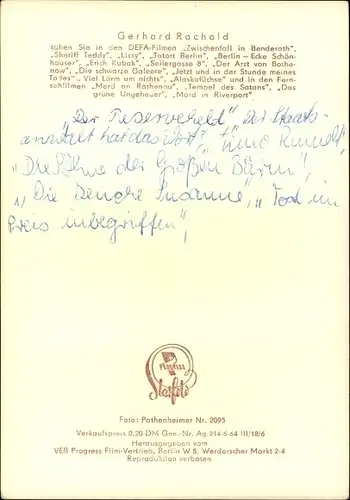 Gerhard Rachold
sahen Sie in den DEFA-Filmen „Zwischenfall in Benderath",
„Sheriff Teddy", „Lissy", „Tatort Berlin", „Berlin – Ecke Schön-
hauser", „Erich Kubak", „Seilergasse 8", „Der Arzt von Bothe-
now", „Die schwarze Galeere", „Jetzt und in der Stunde meines
Todes", „Viel Lärm um nichts", „Alaskafüchse" und in den Fern-
sehfilmen „Mord an Rathenau", „Tempel des Satans", „Das
grüne Ungeheuer", „Mord in Riverport"
„Der Reserveheld", „Der Staats-
anwalt hat das Wort",
„Die Söhne der Großen Bärin",
„Die Susanne", „Tod im
Preis inbegriffen",
Progress
Starfoto
Foto: Pathenheimer Nr. 2095
Verkaufspreis 0,20 DM Gen.-Nr. Ag 214-6-64 III/18/6
Herausgegeben vom
VEB Progress Film-Vertrieb, Berlin W 8, Werderscher Markt 2-4
Reproduktion verboten